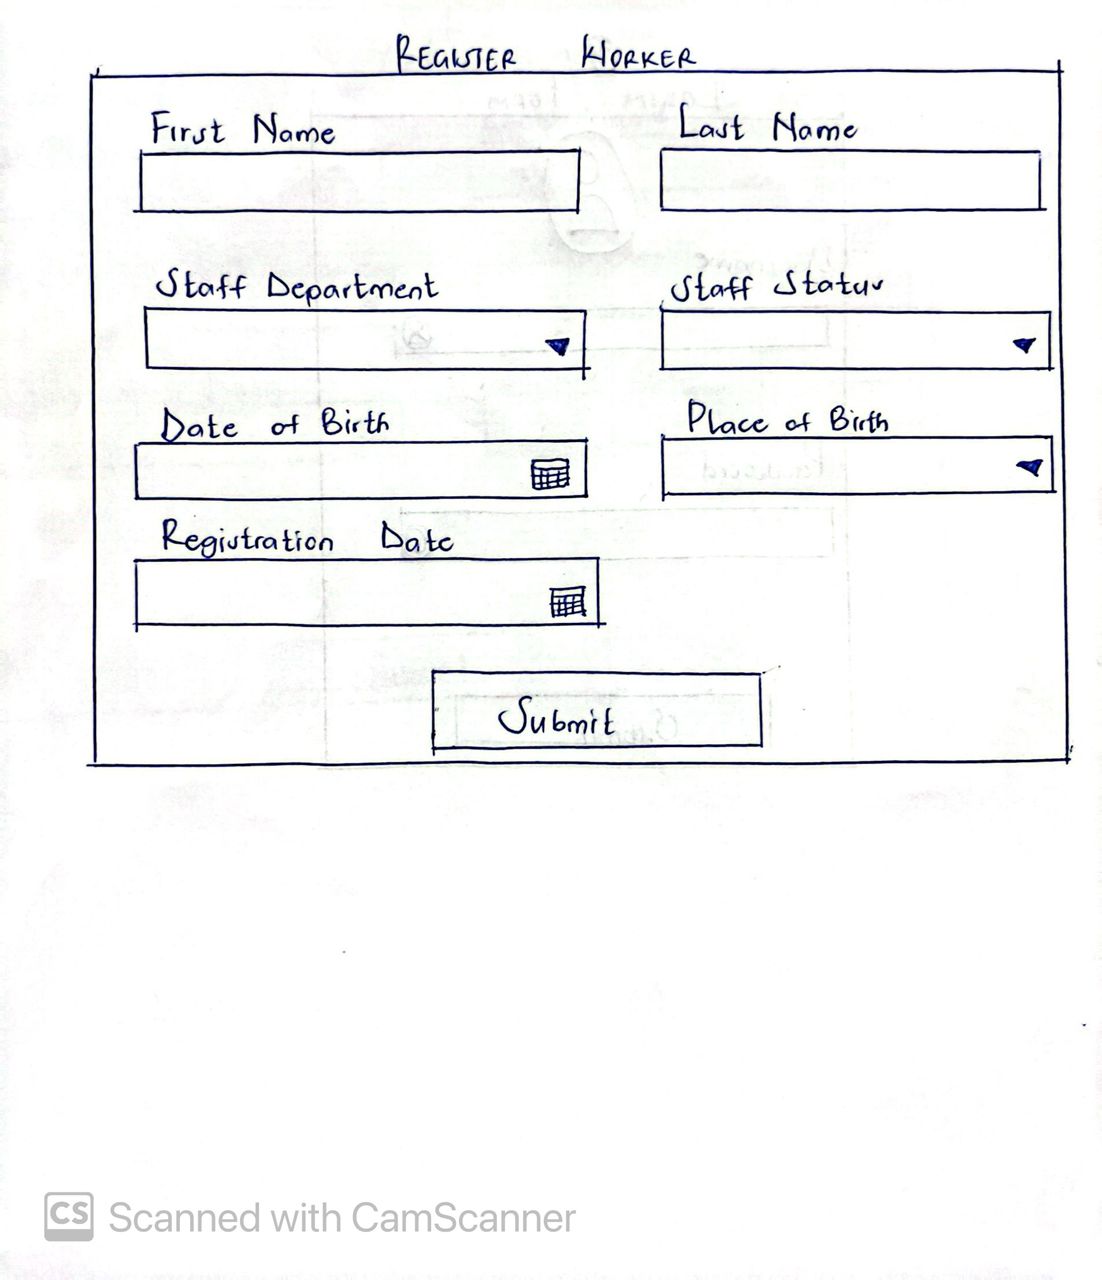 REGISTER WORKER
First Name
Last Name
Staff Department
Staff Status
Date of Birth
Place of Birth
Registration Date
Submit
CS Scanned with CamScanner